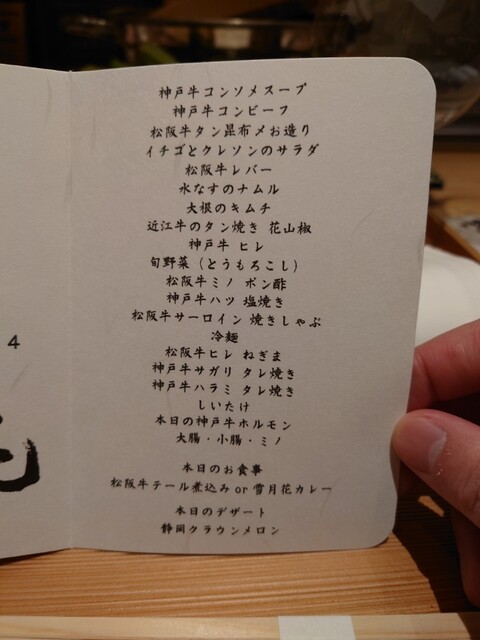 神戸牛コンソメスープ
神戸牛コンビーフ
松阪牛タン昆布〆お造り
イチゴとクレソンのサラダ
松阪牛レバー
水なすのナムル
大根のキムチ
近江牛のタン焼き 花山椒
神戸牛 ヒレ
旬野菜（とうもろこし）
松阪牛ミノ ポン酢
神戸牛ハツ 塩焼き
松阪牛サーロイン 焼きしゃぶ
冷麺
松阪牛ヒレ ねぎま
神戸牛サガリ タレ焼き
神戸牛ハラミ タレ焼き
しいたけ
本日の神戸牛ホルモン
大腸・小腸・ミノ
本日のお食事
松阪牛テール煮込み or 雪月花カレー
本日のデザート
静岡クラウンメロン
4